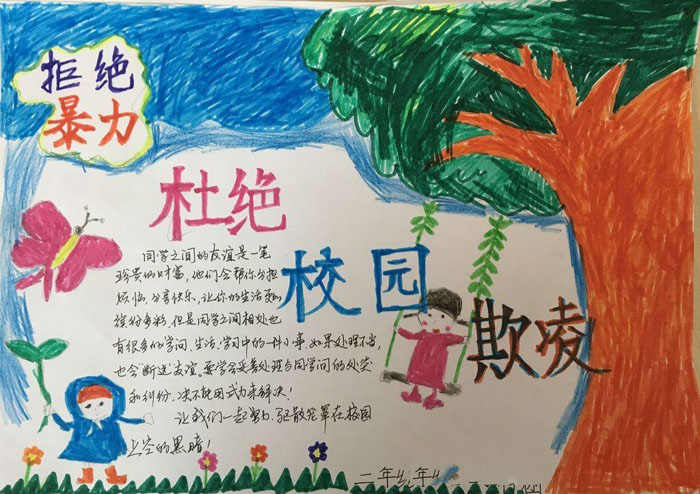 拒绝
暴力
杜绝
校园
欺凌
同学之间的友谊是一笔
珍贵的财富，他们会帮你分担
烦恼、分享快乐，让你的生活更加
缤纷多彩。但是同学之间相处也
有很多的学问、生活、学习中的一件小事，如果处理不当，
也会"断送"友谊。要学会妥善处理与同学间的冲突
和纠纷，决不能用武力来解决！
让我们一起努力，驱散笼罩在校园
上空的黑暗！
二年级